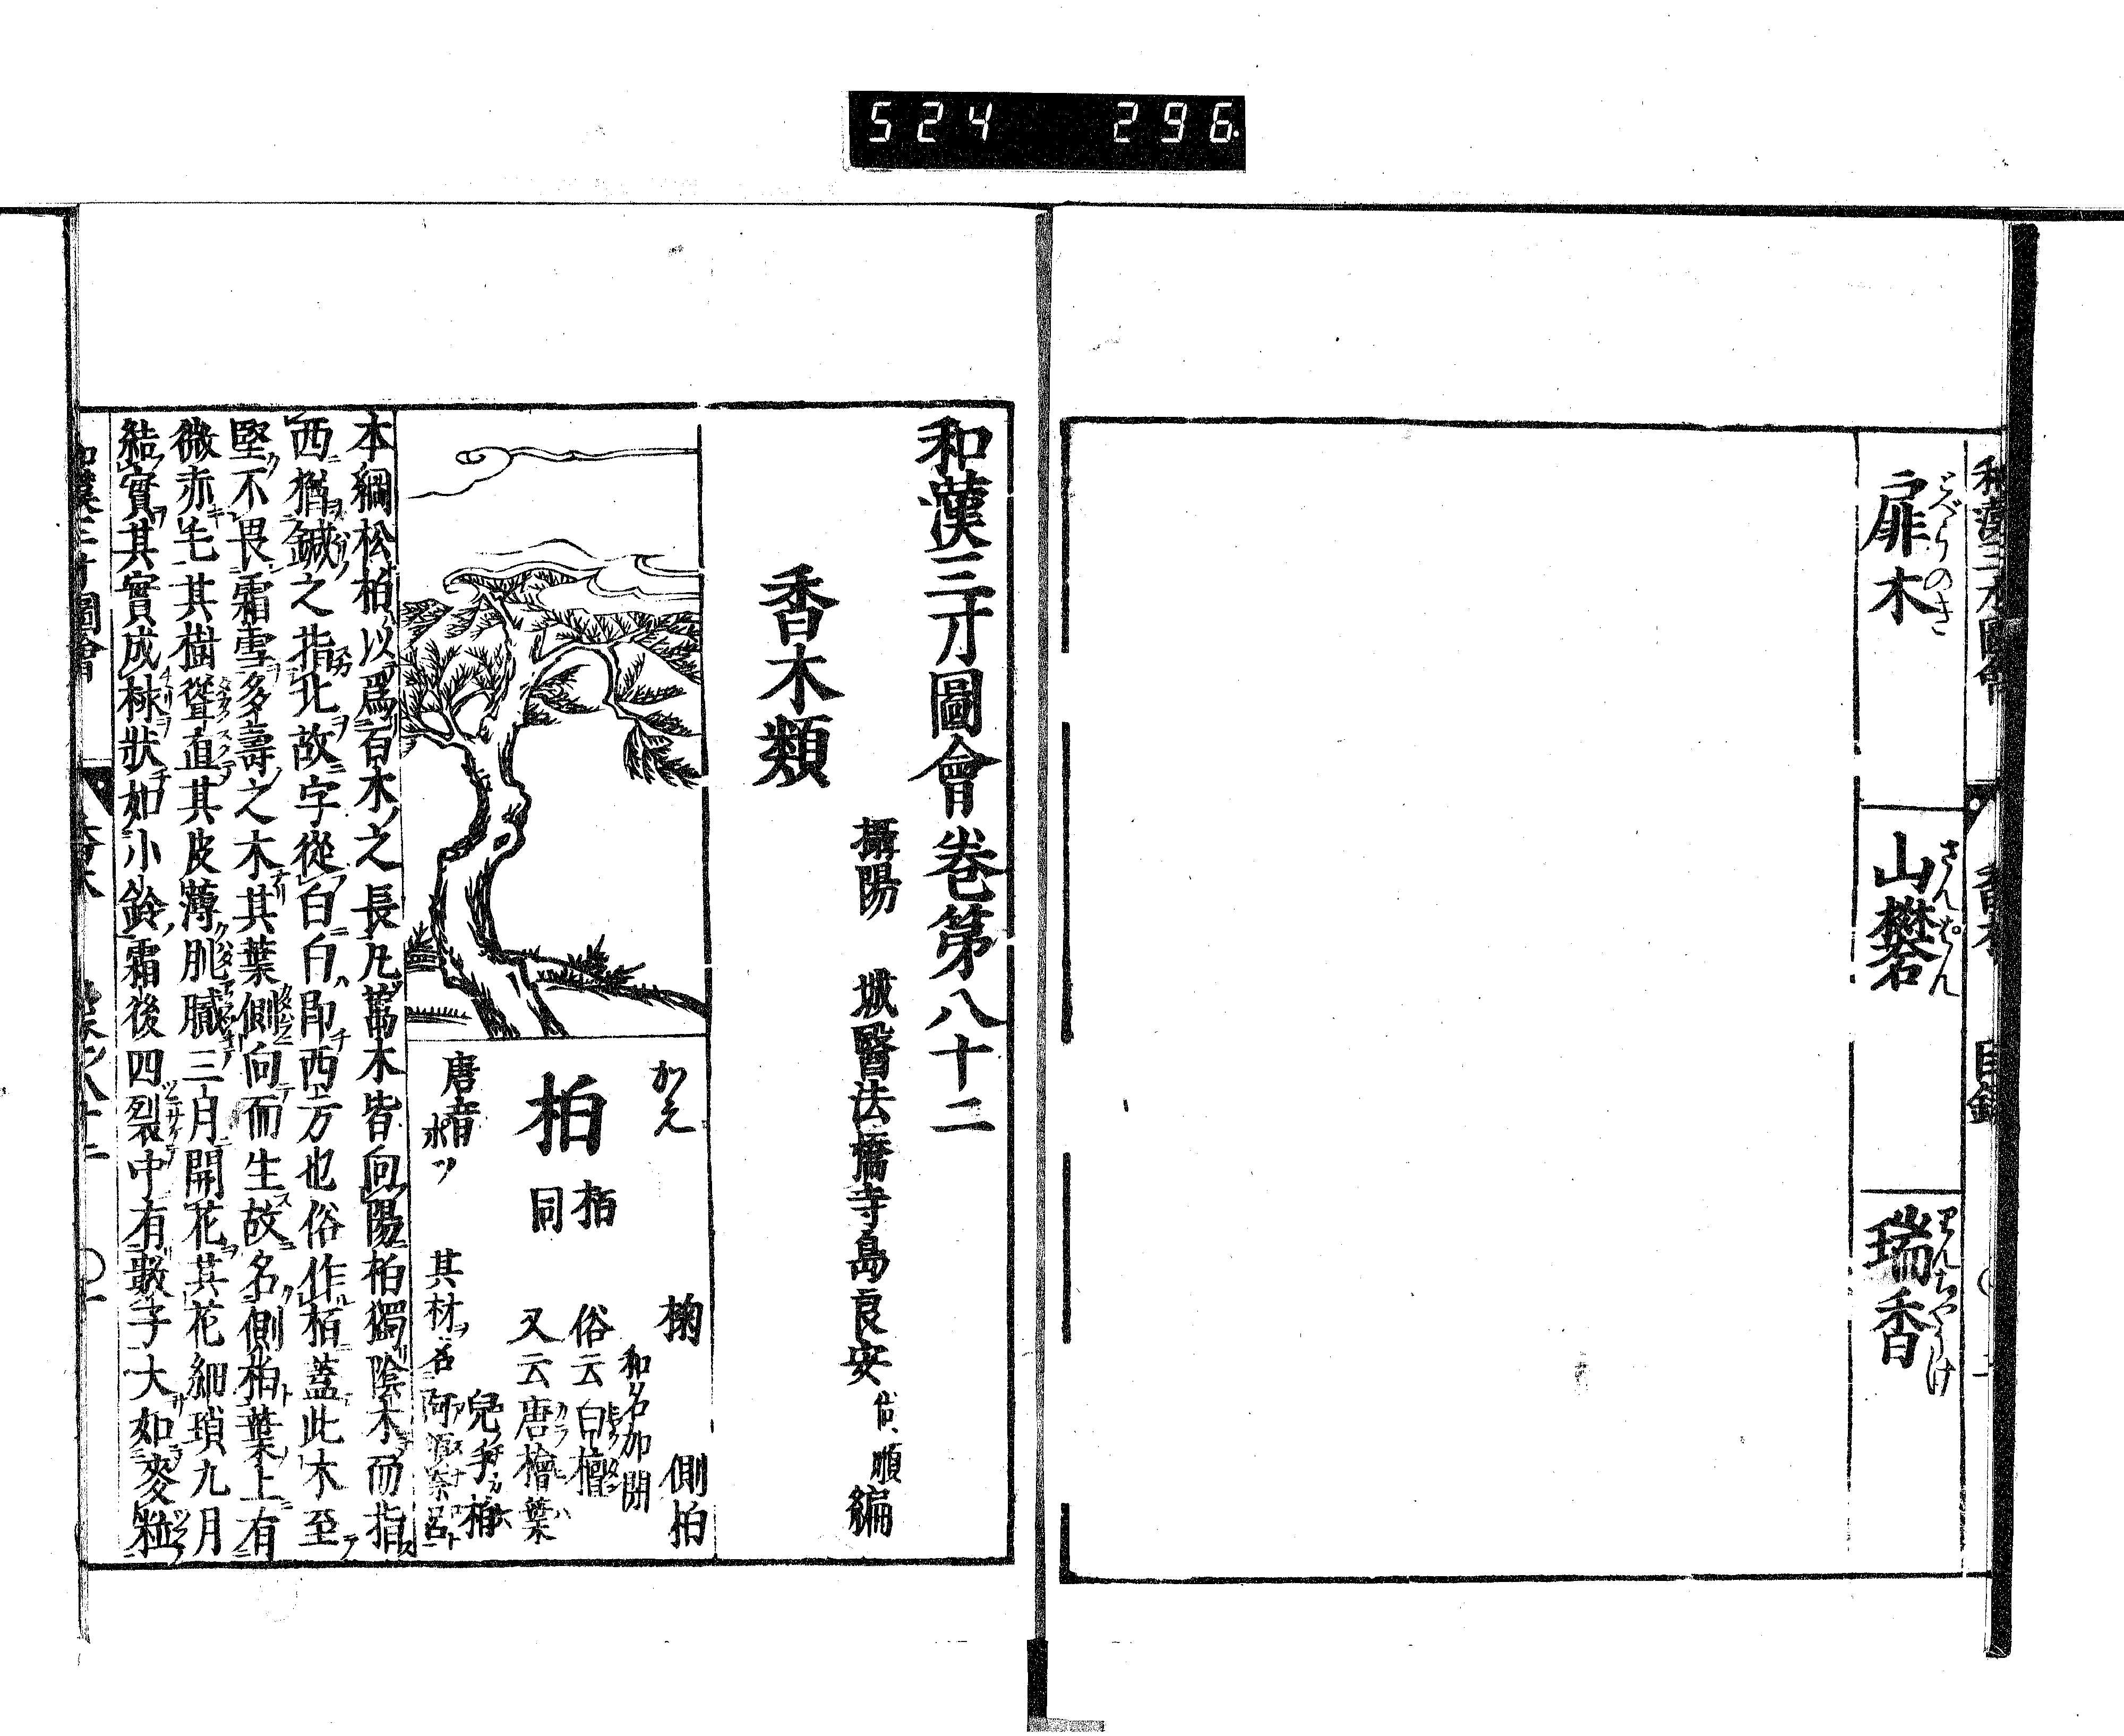 524 296
和漢三才圖會 香木 目録 〇二
扉木 とべりのき
山礬 さんばん
瑞香 りんちやうけ
和漢三才圖會卷第八十二
攝陽 城醫法橋寺島良安尚順編
香木類
かえ
柏
栢同
唐音ポツ
椈 側柏
和名加閉
俗云白檀
又云唐檜葉
兒手柏
其材名阿須奈呂
本綱松柏以爲百木之長凡萬木皆向陽柏獨陰木而指
西猶鍼之指北故字從白白卽西方也俗作栢蓋此木至
堅不畏霜雪多壽之木其葉側向而生故名側柏葉上有
微赤毛其樹聳直其皮薄肌膩三月開花其花細瑣九月
結實其實成梂狀如小鈴霜後四裂中有數子大如麥粒
和漢三才圖會 香木 卷之八十二 〇一